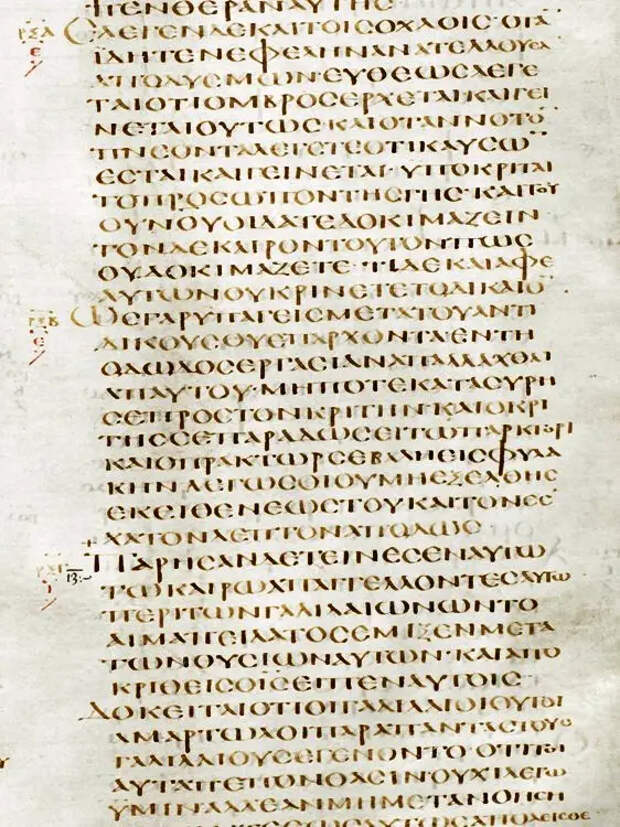 ΠΕΝΘΕΡΑΝΑΥΤΗΣ
ϹΞΑ ΕΛΕΓΕΝΔΕΚΑΙΤΟΙϹΟΧΛΟΙϹΟΤΑ
ΙΔΗΤΕΝΕΦΕΛΗΝΑΝΑΤΕΛΛΟΥϹΑ
ΑΠΟΔΥϹΜΩΝ·ΕΥΘΕΩϹΛΕΓΕ
ΤΑΙΟΤΙΟΜΒΡΟϹΕΡΧΕΤΑΙ·ΚΑΙΓΕΙ
ΝΕΤΑΙΟΥΤΩϹ·ΚΑΙΟΤΑΝΝΟΤΟ
ΠΝΕΟΝΤΑΛΕΓΕΤΕΟΤΙΚΑΥϹΩ
ΕϹΤΑΙΚΑΙΓΕΙΝΕΤΑΙ·ΥΠΟΚΡΙΤΑΙ
ΤΟΠΡΟϹΩΠΟΝΤΗϹΓΗϹ·ΚΑΙΤΟΥ
ΟΥΝΟΥΟΙΔΑΤΕΔΟΚΙΜΑΖΕΙΝ
ΤΟΝΔΕΚΑΙΡΟΝΤΟΥΤΟΝΠΩϹ
ΟΥΔΟΚΙΜΑΖΕΤΕ·ΤΙΔΕΚΑΙΑΦΕ
ΑΥΤΩΝΟΥΚΡΙΝΕΤΕΤΟΔΙΚΑΙΟ
ϹΞΒ ΩϹΓΑΡΥΠΑΓΕΙϹΜΕΤΑΤΟΥΑΝΤΙ
ΔΙΚΟΥϹΟΥΕΠΑΡΧΟΝΤΑΕΝΤΗ
ΟΔΩΔΟϹΕΡΓΑϹΙΑΝΑΠΑΛΛΑΧΘΑΙ
ΑΠΑΥΤΟΥ·ΜΗΠΟΤΕΚΑΤΑϹΥΡΗ
ϹΕΠΡΟϹΤΟΝΚΡΙΤΗΝ·ΚΑΙΟΚΡΙ
ΤΗϹϹΕΠΑΡΑΔΩϹΕΙΤΩΠΡΑΚΤΟΡΙ
ΚΑΙΟΠΡΑΚΤΩΡϹΕΒΑΛΗΕΙϹΦΥΛΑ
ΚΗΝΛΕΓΩϹΟΙΟΥΜΗΕΞΕΛΘΗϹ
ΕΚΕΙΘΕΝΕΩϹΤΟΥΚΑΙΤΟΝΕϹ
ΧΑΤΟΝΛΕΠΤΟΝΑΠΟΔΩϹ
13:~ ΠΑΡΗϹΑΝΔΕΤΕΙΝΕϹΕΝΑΥΤΩ
ΤΩΚΑΙΡΩΑΠΑΓΓΕΛΛΟΝΤΕϹΑΥΤΩ
ΠΕΡΙΤΩΝΓΑΛΙΛΑΙΩΝΩΝΤΟ
ΑΙΜΑΠΕΙΛΑΤΟϹΕΜΙΞΕΝΜΕΤΑ
ΤΩΝΘΥϹΙΩΝΑΥΤΩΝ·ΚΑΙΑΠΟ
ΚΡΙΘΕΙϹΟΙϹΕΙΠΕΝΑΥΤΟΙϹ
ΔΟΚΕΙΤΑΙΟΤΙΟΙΓΑΛΙΛΑΙΟΙΟΥΤΟΙ
ΑΜΑΡΤΩΛΟΙΠΑΡΑΠΑΝΤΑϹΤΟΥϹ
ΓΑΛΙΛΑΙΟΥϹΕΓΕΝΟΝΤΟΟΤΙ
ΑΥΤΑΠΕΠΟΝΘΑϹΙΝΟΥΧΙΛΕΓΩ
ΥΜΙΝΑΛΛΕΑΝΜΗΜΕΤΑΝΟΗϹΗ